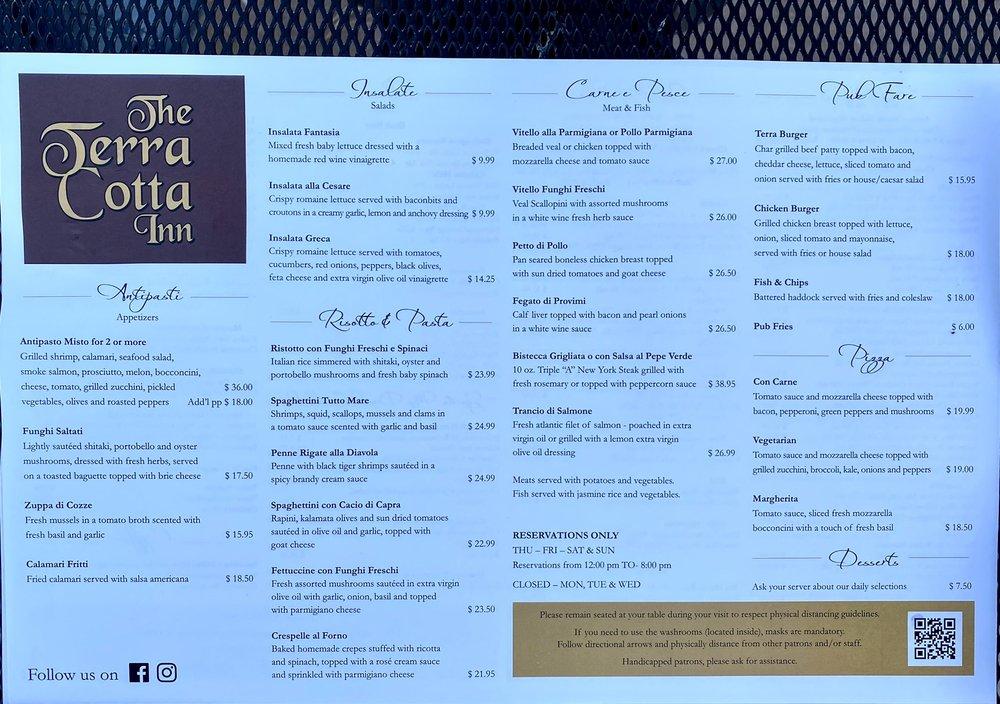 The
Terra
Cotta
Inn
Antipasti
Appetizers
Antipasto Misto for 2 or more
Grilled shrimp, calamari, seafood salad,
smoke salmon, prosciutto, melon, bocconcini,
cheese, tomato, grilled zucchini, pickled $ 36.00
vegetables, olives and roasted peppers Add'l pp $ 18.00
Funghi Saltati
Lightly sautéed shitaki, portobello and oyster
mushrooms, dressed with fresh herbs, served
on a toasted baguette topped with brie cheese $ 17.50
Zuppa di Cozze
Fresh mussels in a tomato broth scented with
fresh basil and garlic $ 15.95
Calamari Fritti
Fried calamari served with salsa americana $ 18.50
Follow us on
Insalate
Salads
Insalata Fantasia
Mixed fresh baby lettuce dressed with a
homemade red wine vinaigrette $ 9.99
Insalata alla Cesare
Crispy romaine lettuce served with baconbits and
croutons in a creamy garlic, lemon and anchovy dressing $ 9.99
Insalata Greca
Crispy romaine lettuce served with tomatoes,
cucumbers, red onions, peppers, black olives,
feta cheese and extra virgin olive oil vinaigrette $ 14.25
Risotto & Pasta
Ristotto con Funghi Freschi e Spinaci
Italian rice simmered with shitaki, oyster and
portobello mushrooms and fresh baby spinach $ 23.99
Spaghettini Tutto Mare
Shrimps, squid, scallops, mussels and clams in
a tomato sauce scented with garlic and basil $ 24.99
Penne Rigate alla Diavola
Penne with black tiger shrimps sautéed in a
spicy brandy cream sauce $ 24.99
Spaghettini con Cacio di Capra
Rapini, kalamata olives and sun dried tomatoes
sautéed in olive oil and garlic, topped with
goat cheese $ 22.99
Fettuccine con Funghi Freschi
Fresh assorted mushrooms sautéed in extra virgin
olive oil with garlic, onion, basil and topped
with parmigiano cheese $ 23.50
Crespelle al Forno
Baked homemade crepes stuffed with ricotta
and spinach, topped with a rosé cream sauce
and sprinkled with parmigiano cheese $ 21.95
Carne e Pesce
Meat & Fish
Vitello alla Parmigiana or Pollo Parmigiana
Breaded veal or chicken topped with
mozzarella cheese and tomato sauce $ 27.00
Vitello Funghi Freschi
Veal Scallopini with assorted mushrooms
in a white wine fresh herb sauce $ 26.00
Petto di Pollo
Pan seared boneless chicken breast topped
with sun dried tomatoes and goat cheese $ 26.50
Fegato di Provimi
Calf liver topped with bacon and pearl onions
in a white wine sauce $ 26.50
Bistecca Grigliata o con Salsa al Pepe Verde
10 oz. Triple "A" New York Steak grilled with
fresh rosemary or topped with peppercorn sauce $ 38.95
Trancio di Salmone
Fresh atlantic filet of salmon - poached in extra
virgin oil or grilled with a lemon extra virgin
olive oil dressing $ 26.99
Meats served with potatoes and vegetables.
Fish served with jasmine rice and vegetables.
RESERVATIONS ONLY
THU – FRI – SAT & SUN
Reservations from 12:00 pm TO- 8:00 pm
CLOSED – MON, TUE & WED
Pub Fare
Terra Burger
Char grilled beef patty topped with bacon,
cheddar cheese, lettuce, sliced tomato and
onion served with fries or house/caesar salad $ 15.95
Chicken Burger
Grilled chicken breast topped with lettuce,
onion, sliced tomato and mayonnaise,
served with fries or house salad $ 18.00
Fish & Chips
Battered haddock served with fries and coleslaw $ 18.00
Pub Fries $ 6.00
Pizza
Con Carne
Tomato sauce and mozzarella cheese topped with
bacon, pepperoni, green peppers and mushrooms $ 19.99
Vegetarian
Tomato sauce and mozzarella cheese topped with
grilled zucchini, broccoli, kale, onions and peppers $ 19.00
Margherita
Tomato sauce, sliced fresh mozzarella
bocconcini with a touch of fresh basil $ 18.50
Desserts
Ask your server about our daily selections $ 7.50
Please remain seated at your table during your visit to respect physical distancing guidelines.
If you need to use the washrooms (located inside), masks are mandatory.
Follow directional arrows and physically distance from other patrons and/or staff.
Handicapped patrons, please ask for assistance.